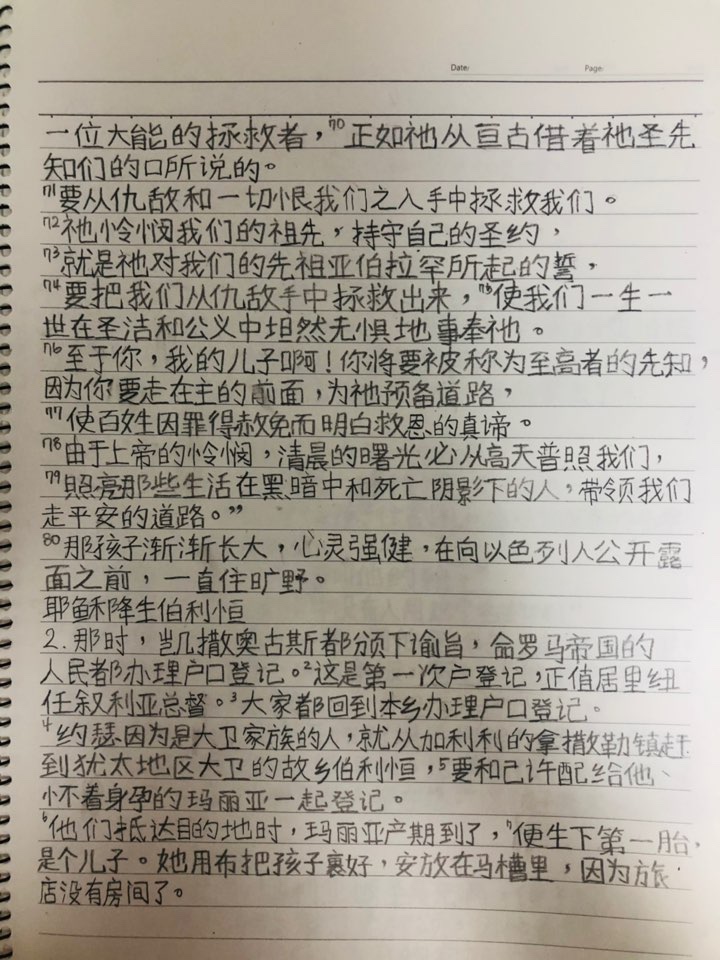 Date:
Page:
一位大能的拯救者，⁷⁰正如祂从亘古借着祂圣先
知们的口所说的。
⁷¹要从仇敌和一切恨我们之人手中拯救我们。
⁷²祂怜悯我们的祖先，持守自己的圣约，
⁷³就是祂对我们的先祖亚伯拉罕所起的誓，
⁷⁴要把我们从仇敌手中拯救出来，⁷⁵使我们一生一
世在圣洁和公义中坦然无惧地事奉祂。
⁷⁶至于你，我的儿子啊！你将要被称为至高者的先知，
因为你要走在主的前面，为祂预备道路，
⁷⁷使百姓因罪得赦免而明白救恩的真谛。
⁷⁸由于上帝的怜悯，清晨的曙光必从高天普照我们，
⁷⁹照亮那些生活在黑暗中和死亡阴影下的人，带领我们
走平安的道路。”
⁸⁰那孩子渐渐长大，心灵强健，在向以色列人公开露
面之前，一直住旷野。
耶稣降生伯利恒
2.那时，凯撒奥古斯都颁下谕旨，命罗马帝国的
人民都办理户口登记。²这是第一次户登记，正值居里纽
任叙利亚总督。³大家都回到本乡办理户口登记。
⁴约瑟因为是大卫家族的人，就从加利利的拿撒勒镇赶
到犹太地区大卫的故乡伯利恒，⁵要和已许配给他、
怀着身孕的玛丽亚一起登记。
⁶他们抵达目的地时，玛丽亚产期到了，⁷便生下第一胎，
是个儿子。她用布把孩子裹好，安放在马槽里，因为旅
店没有房间了。